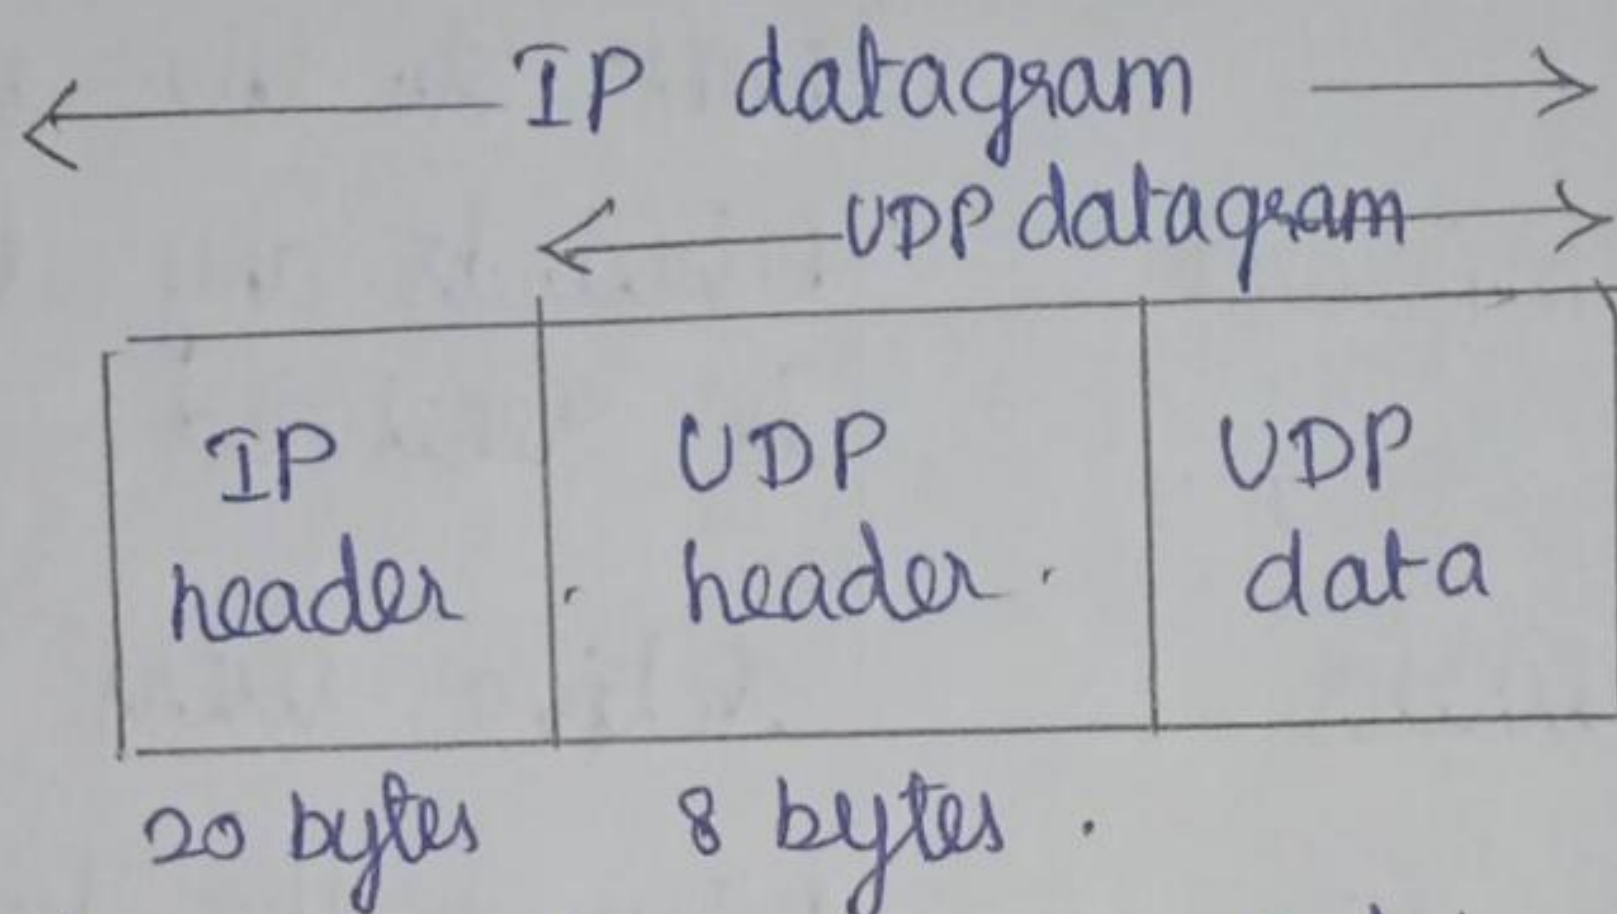 IP datagram
UDP datagram
IP UDP UDP
header header data
20 bytes 8 bytes